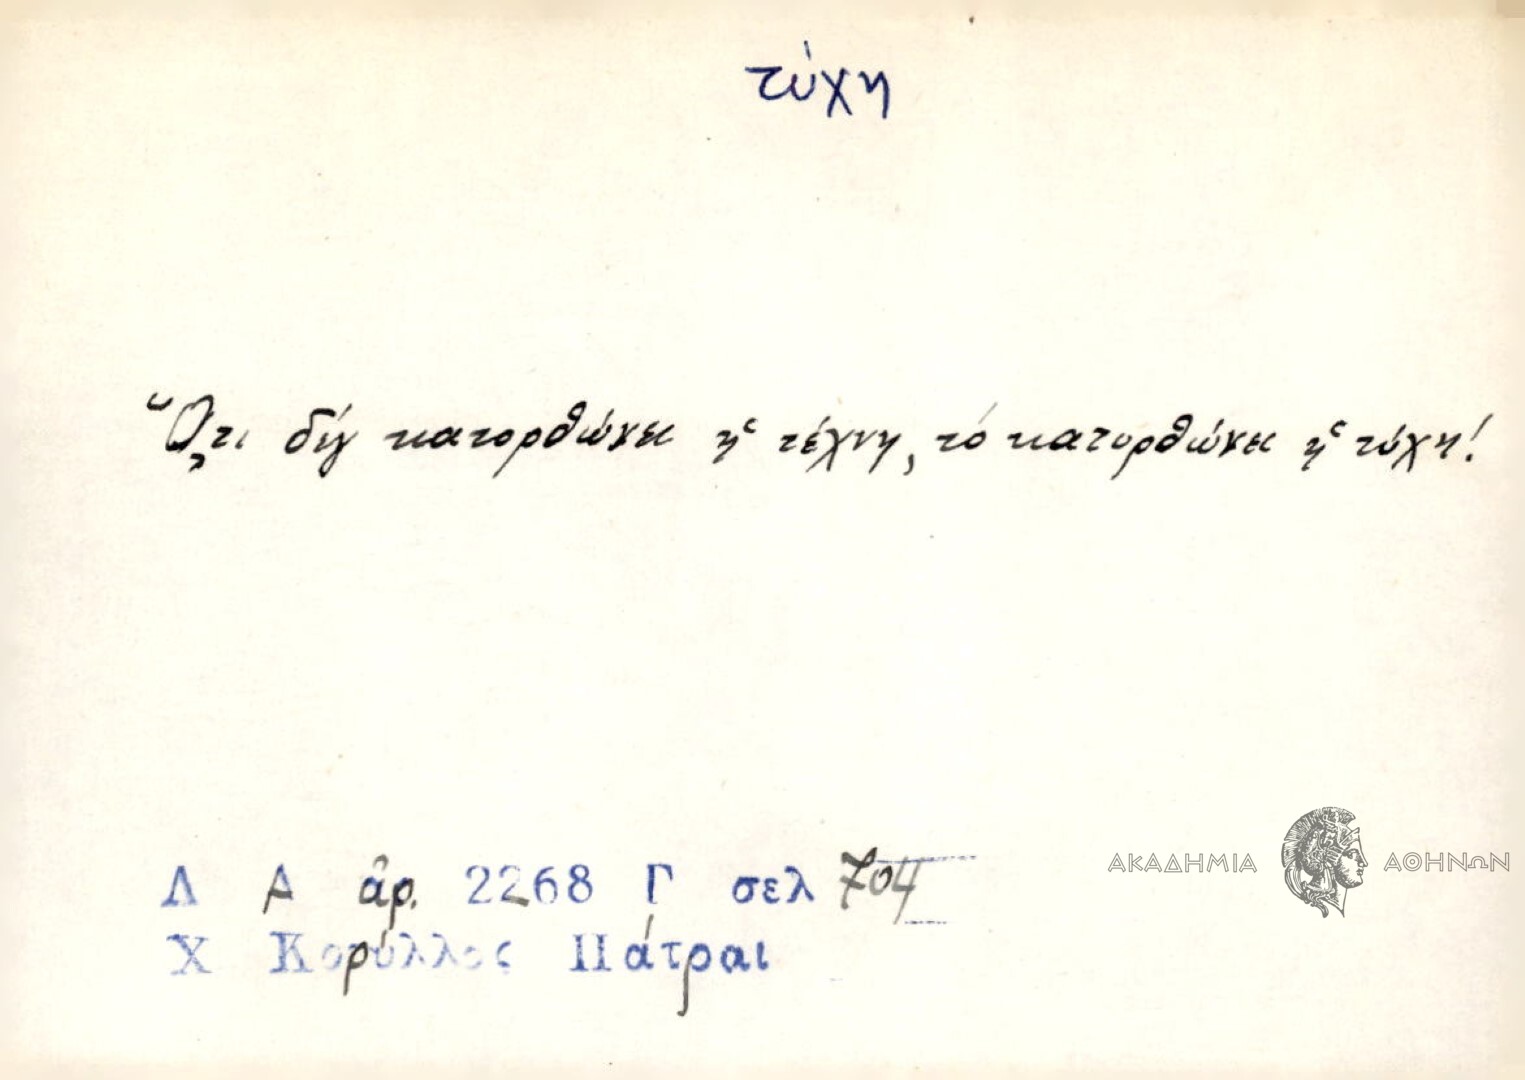 τύχη
Ὅ,τι δέν κατορθώνει ἡ τέχνη, τό κατορθώνει ἡ τύχη!
ΑΚΑΔΗΜΙΑ ΑΘΗΝΩΝ
Λ Α ἀρ. 2268 Γ σελ 704
Χ Κορύλλος Πάτραι